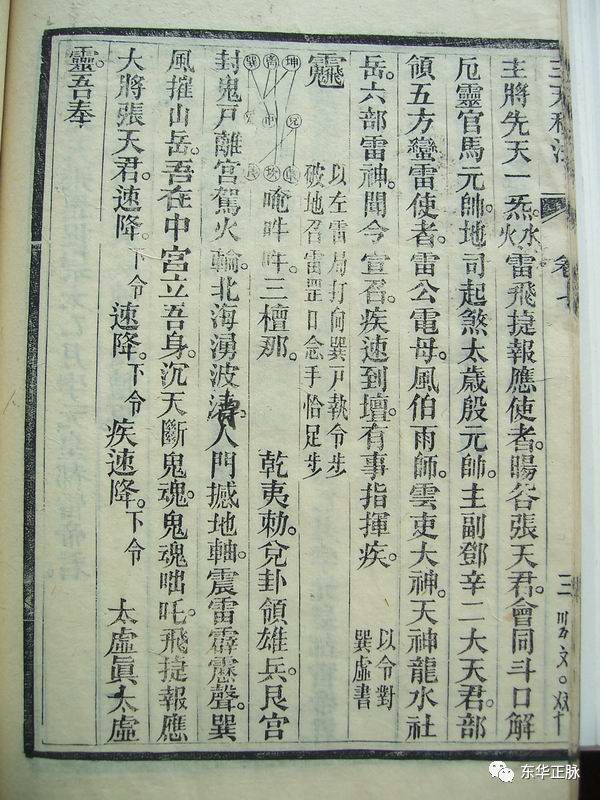 三天
三
主將先天一炁。水火雷飛捷報應使者。暘谷張天君。會同斗口解
厄靈官馬元帥。地司起煞太歲殷元帥。主副鄧辛二大天君。部
領五方蠻雷使者。雷公電母。風伯雨師。雲吏大神。天神龍水社
岳。六部雷神。聞令宣召。疾速到壇。有事指揮疾。以令對巽虛書
以左雷局打向巽戶執令步
破地召雷罡口念手恰足步
坤
唵吽吽三檀那。 乾夷勅。兌卦領雄兵。艮宮
封鬼戶離宮駕火輪。北海湧波濤。人門撼地軸。震雷霹靂聲。巽
風摧山岳。吾在中宮立吾身。沉天斷鬼魂。鬼魂咄吒。飛捷報應
大將張天君。速降。下令 速降。下令 疾速降。下令 太虛眞太虛
靈。吾奉
东华正脉